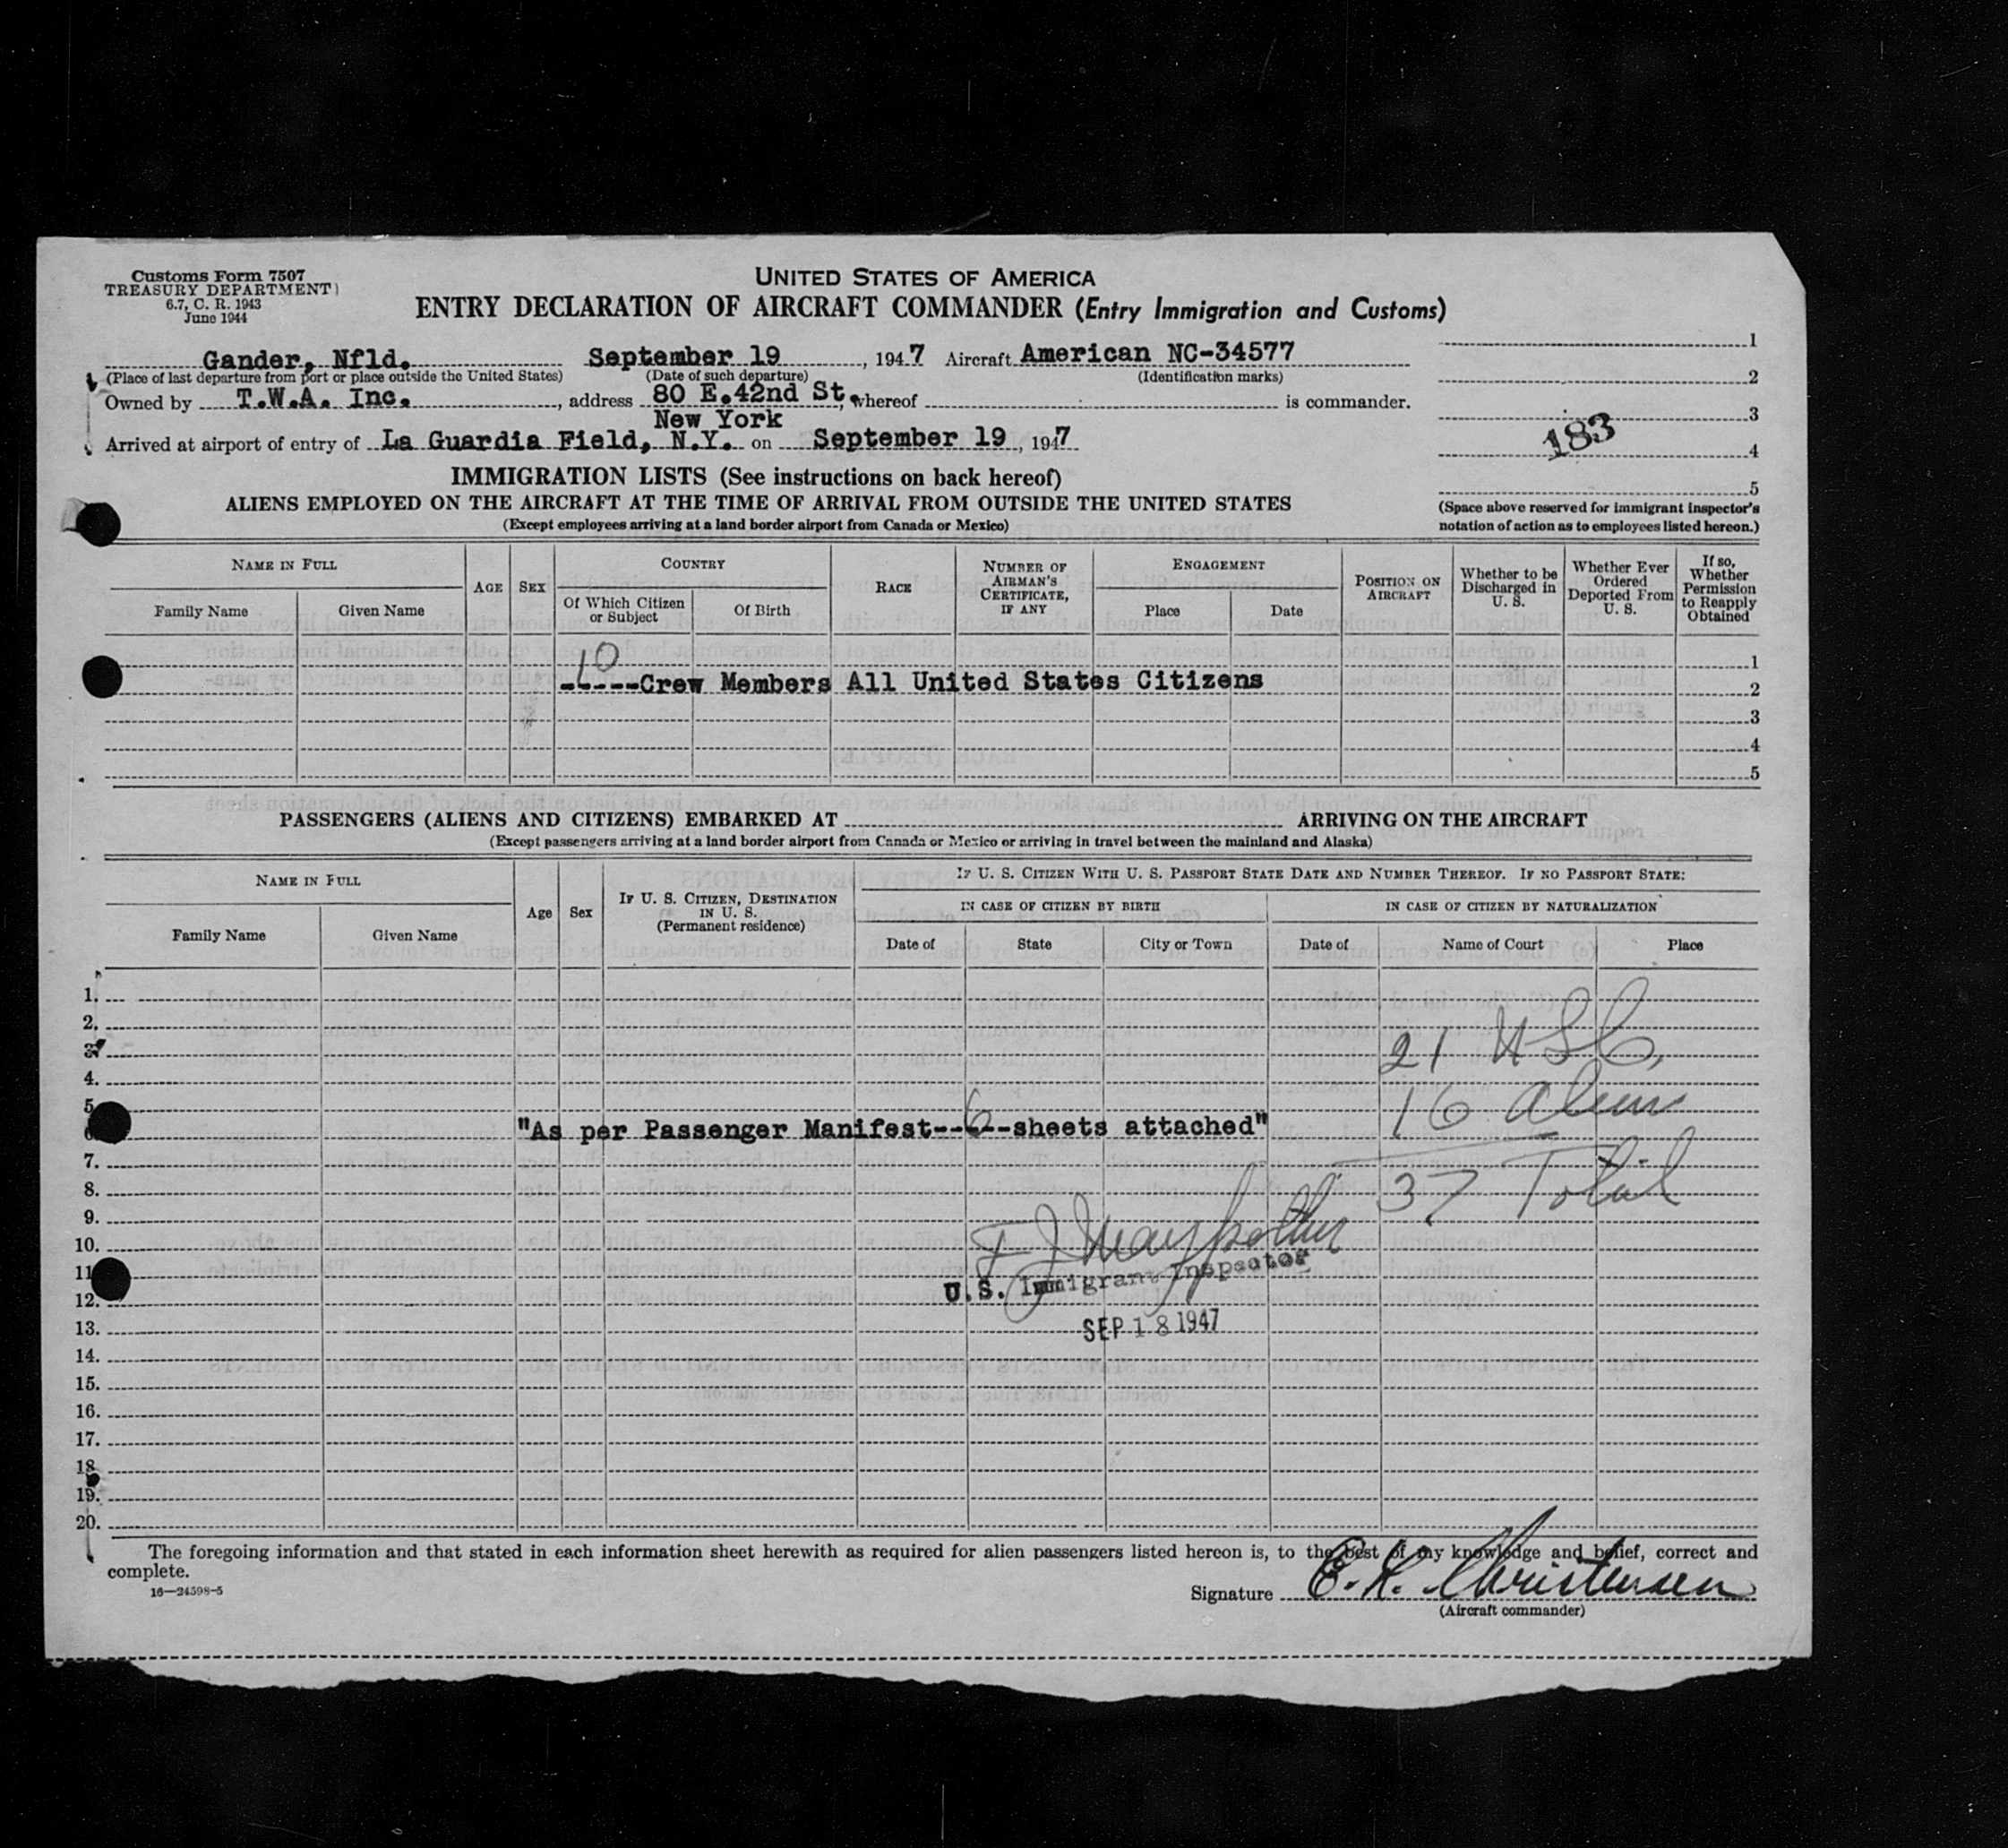 Customs Form 7507
TREASURY DEPARTMENT
6.7, C. R. 1943
June 1944
UNITED STATES OF AMERICA
ENTRY DECLARATION OF AIRCRAFT COMMANDER (Entry Immigration and Customs)
Gander, Nfld. September 19, 1947 Aircraft American NC-34577
(Place of last departure from port or place outside the United States) (Date of such departure) (Identification marks)
Owned by T.W.A. Inc., address 80 E.42nd St. whereof is commander.
New York
Arrived at airport of entry of La Guardia Field, N.Y. on September 19, 1947
1
2
3
183
4
5
(Space above reserved for immigrant inspector's notation of action as to employees listed hereon.)
IMMIGRATION LISTS (See instructions on back hereof)
ALIENS EMPLOYED ON THE AIRCRAFT AT THE TIME OF ARRIVAL FROM OUTSIDE THE UNITED STATES
(Except employees arriving at a land border airport from Canada or Mexico)
NAME IN FULL
Family Name Given Name
AGE
SEX
COUNTRY
Of Which Citizen or Subject Of Birth
RACE
NUMBER OF AIRMAN'S CERTIFICATE, IF ANY
ENGAGEMENT
Place Date
POSITION ON AIRCRAFT
Whether to be Discharged in U. S.
Whether Ever Ordered Deported From U. S.
If so, Whether Permission to Reapply Obtained
1
10
-----Crew Members All United States Citizens 2
3
4
5
PASSENGERS (ALIENS AND CITIZENS) EMBARKED AT ARRIVING ON THE AIRCRAFT
(Except passengers arriving at a land border airport from Canada or Mexico or arriving in travel between the mainland and Alaska)
NAME IN FULL
Family Name Given Name
Age
Sex
IF U. S. CITIZEN, DESTINATION IN U. S. (Permanent residence)
IF U. S. CITIZEN WITH U. S. PASSPORT STATE DATE AND NUMBER THEREOF. IF NO PASSPORT STATE:
IN CASE OF CITIZEN BY BIRTH IN CASE OF CITIZEN BY NATURALIZATION
Date of State City or Town Date of Name of Court Place
1.
2.
3.
21 USC,
4.
5.
16 Aliens
6.
"As per Passenger Manifest--6--sheets attached"
7.
8.
37 Total
9.
10.
11.
U.S. Immigrant Inspector
12.
13.
SEP 18 1947
14.
15.
16.
17.
18.
19.
20.
The foregoing information and that stated in each information sheet herewith as required for alien passengers listed hereon is, to the best of my knowledge and belief, correct and
complete.
16—24598-5
Signature E. K. Christensen
(Aircraft commander)